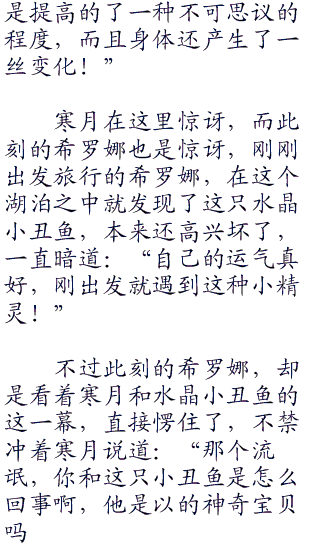 是提高的了一种不可思议的
程度，而且身体还产生了一
丝变化！”
寒月在这里惊讶，而此
刻的希罗娜也是惊讶，刚刚
出发旅行的希罗娜，在这个
湖泊之中就发现了这只水晶
小丑鱼，本来还高兴坏了，
一直暗道：“自己的运气真
好，刚出发就遇到这种小精
灵！”
不过此刻的希罗娜，却
是看着寒月和水晶小丑鱼的
这一幕，直接愣住了，不禁
冲着寒月说道：“那个流
氓，你和这只小丑鱼是怎么
回事啊，他是以的神奇宝贝
吗